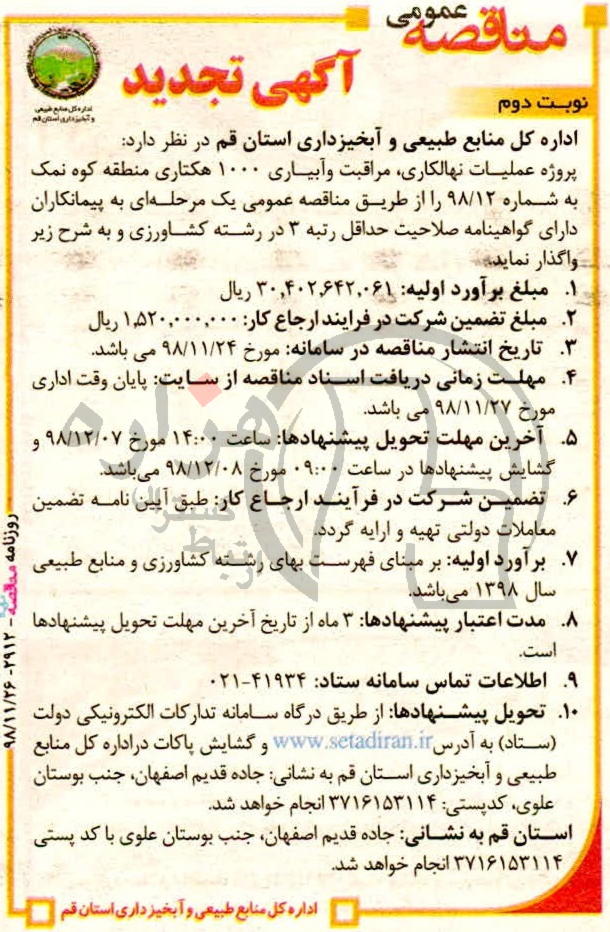 مناقصه عمومی
آگهی تجدید
نوبت دوم
اداره کل منابع طبیعی
و آبخیزداری استان قم
اداره کل منابع طبیعی و آبخیزداری استان قم در نظر دارد:
پروژه عملیات نهالکاری، مراقبت وآبیاری ۱۰۰۰ هکتاری منطقه کوه نمک
به شماره ۹۸/۱۲ را از طریق مناقصه عمومی یک مرحله‌ای به پیمانکاران
دارای گواهینامه صلاحیت حداقل رتبه ۳ در رشته کشاورزی و به شرح زیر
واگذار نماید.
۱. مبلغ برآورد اولیه: ۳۰,۴۰۲,۶۴۲,۰۶۱ ریال
۲. مبلغ تضمین شرکت در فرایند ارجاع کار: ۱,۵۲۰,۰۰۰,۰۰۰ ریال
۳. تاریخ انتشار مناقصه در سامانه: مورخ ۹۸/۱۱/۲۴ می باشد.
۴. مهلت زمانی دریافت اسناد مناقصه از سایت: پایان وقت اداری
مورخ ۹۸/۱۱/۲۷ می باشد.
۵. آخرین مهلت تحویل پیشنهادها: ساعت ۱۴:۰۰ مورخ ۹۸/۱۲/۰۷ و
گشایش پیشنهادها در ساعت ۰۹:۰۰ مورخ ۹۸/۱۲/۰۸ می‌باشد.
۶. تضمین شرکت در فرآیند ارجاع کار: طبق آیین نامه تضمین
معاملات دولتی تهیه و ارایه گردد.
۷. برآورد اولیه: بر مبنای فهرست بهای رشته کشاورزی و منابع طبیعی
سال ۱۳۹۸ می‌باشد.
۸. مدت اعتبار پیشنهادها: ۳ ماه از تاریخ آخرین مهلت تحویل پیشنهادها
است.
۹. اطلاعات تماس سامانه ستاد: ۴۱۹۳۴-۰۲۱
۱۰. تحویل پیشنهادها: از طریق درگاه سامانه تدارکات الکترونیکی دولت
(ستاد) به آدرس www.setadiran.ir و گشایش پاکات دراداره کل منابع
طبیعی و آبخیزداری استان قم به نشانی: جاده قدیم اصفهان، جنب بوستان
علوی، کدپستی: ۳۷۱۶۱۵۳۱۱۴ انجام خواهد شد.
استان قم به نشانی: جاده قدیم اصفهان، جنب بوستان علوی با کد پستی
۳۷۱۶۱۵۳۱۱۴ انجام خواهد شد.
اداره کل منابع طبیعی و آبخیزداری استان قم
روزنامه مناقصه ۲۹۱۲-۹۸/۱۱/۲۶
هزاره